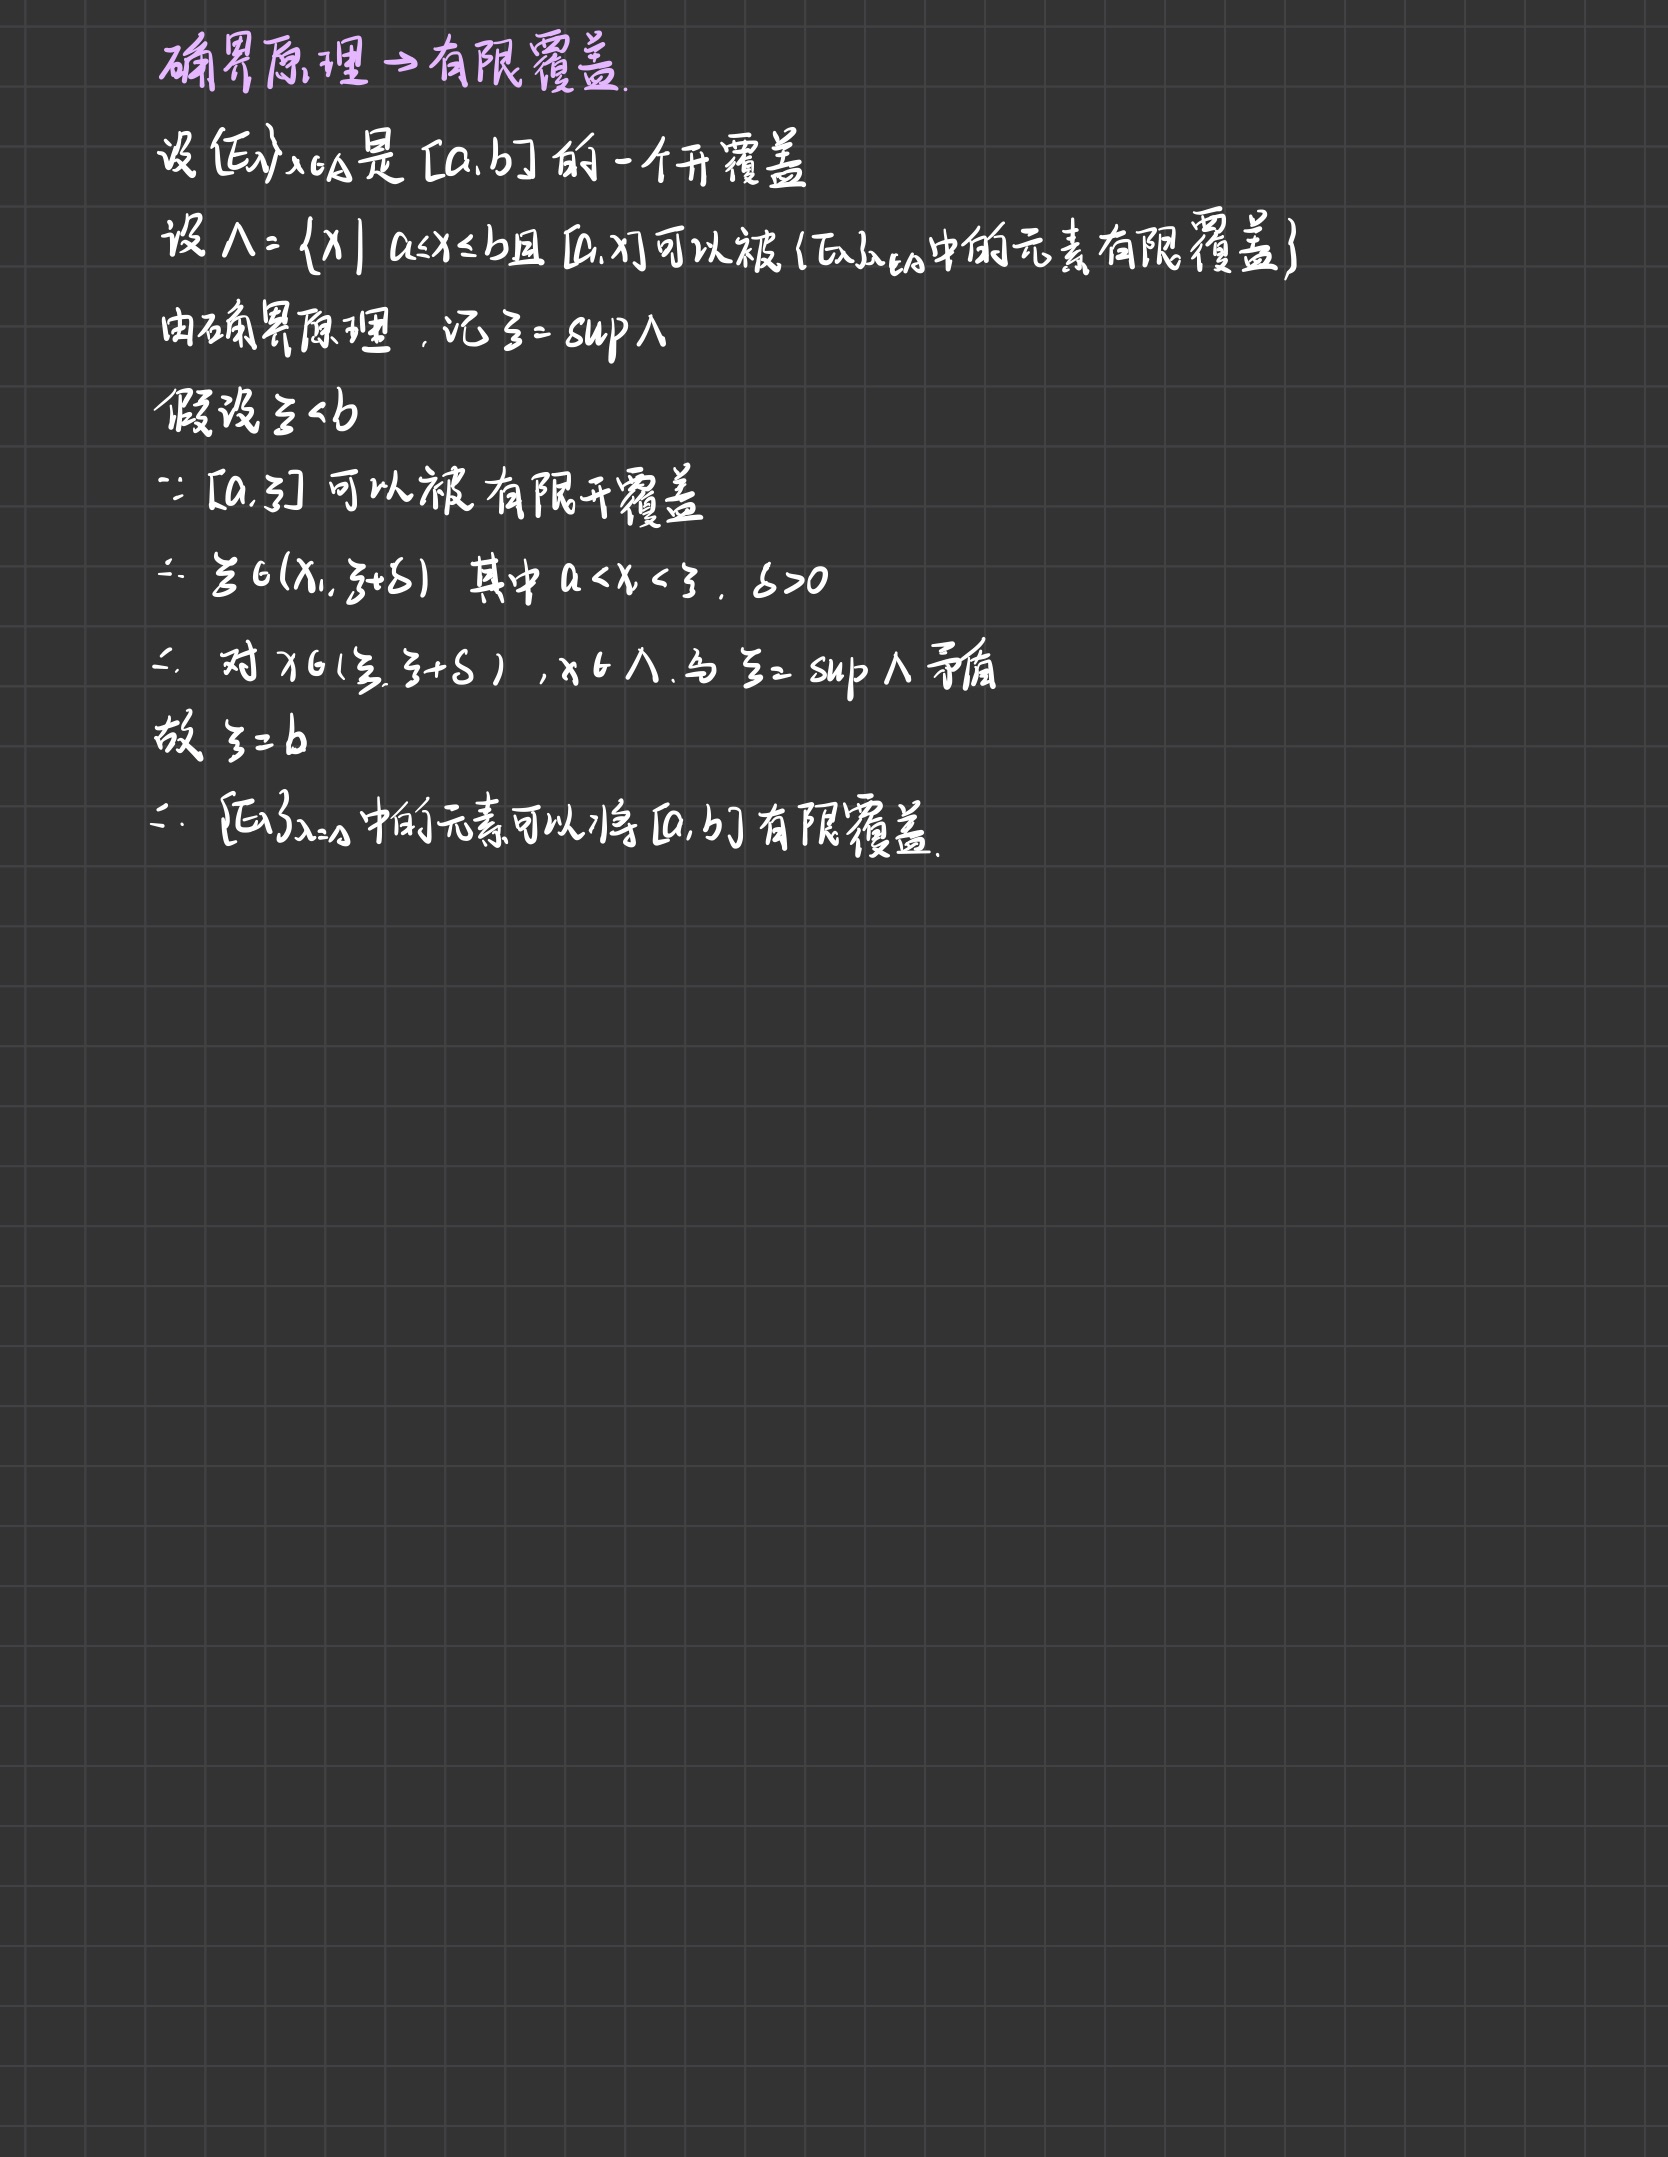 确界原理→有限覆盖.
设{Eλ}λ∈Δ是[a,b]的一个开覆盖
设Λ={x| a≤x≤b且[a,x]可以被{Eλ}λ∈Δ中的元素有限覆盖}
由确界原理,记ξ=supΛ
假设ξ<b
∵[a,ξ]可以被有限开覆盖
∴ξ∈(x₁,ξ+δ) 其中a<x₁<ξ, δ>0
∴对x∈(ξ,ξ+δ),x∈Λ,与ξ=supΛ矛盾
故ξ=b
∴{Eλ}λ=Δ中的元素可以将[a,b]有限覆盖.